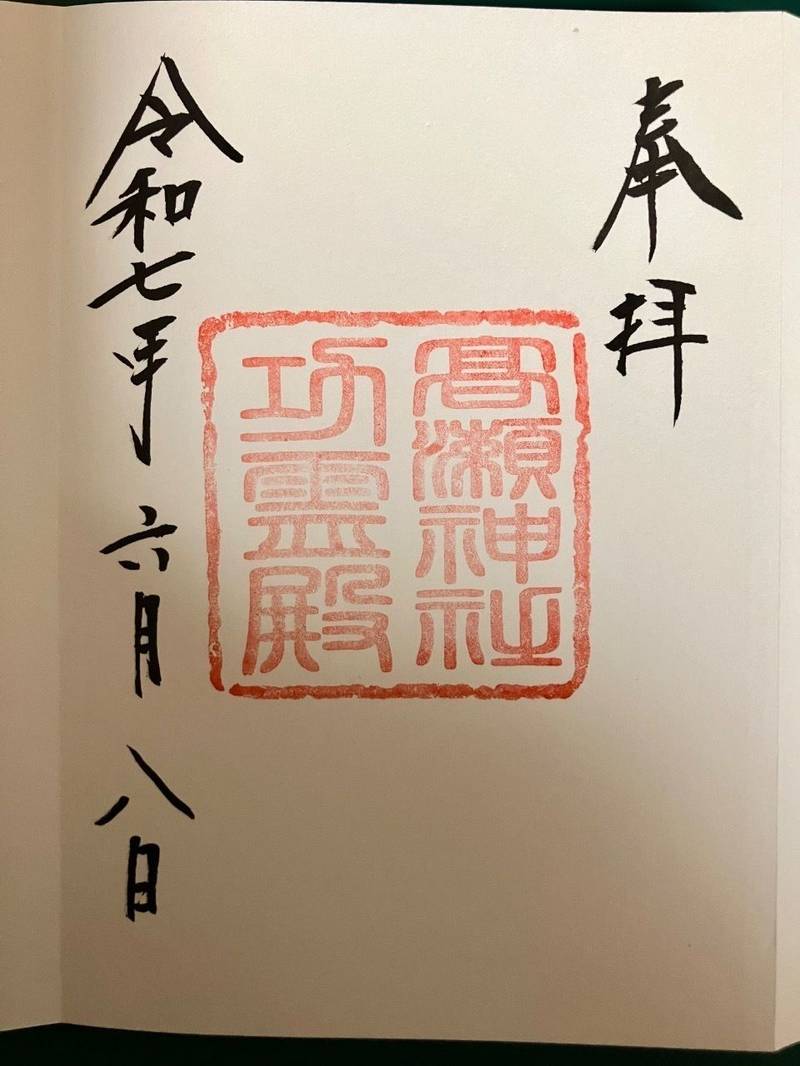 奉拝
高瀬神社
功霊殿
令和七年六月八日